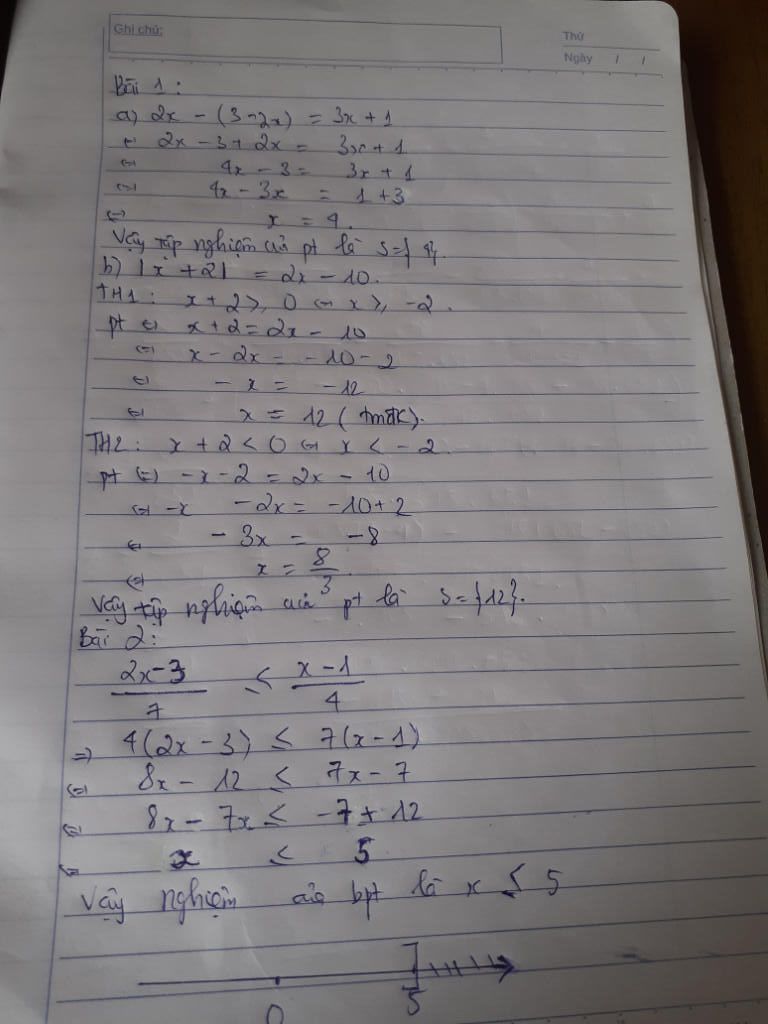 Ghi chú:
Thứ
Ngày / /
Bài 1:
a) 2x - (3-2x) = 3x + 1
⇔ 2x - 3 + 2x = 3x + 1
⇔ 4x - 3 = 3x + 1
⇔ 4x - 3x = 1 + 3
⇔ x = 4.
Vậy tập nghiệm của pt là S={4}.
b) |x + 2| = 2x - 10.
TH1: x + 2 ≥ 0 ⇔ x ≥ -2.
pt ⇔ x + 2 = 2x - 10
⇔ x - 2x = -10 - 2
⇔ - x = -12
⇔ x = 12 (tmđk).
TH2: x + 2 < 0 ⇔ x < -2
pt ⇔ -x - 2 = 2x - 10
⇔ -x - 2x = -10 + 2
⇔ - 3x = -8
⇔ x = 8/3.
Vậy tập nghiệm của pt là S={12}.
Bài 2:
(2x-3)/7 ≤ (x-1)/4
⇒ 4(2x - 3) ≤ 7(x - 1)
⇔ 8x - 12 ≤ 7x - 7
⇔ 8x - 7x ≤ -7 + 12
⇔ x ≤ 5
Vậy nghiệm của bpt là x ≤ 5
0 5